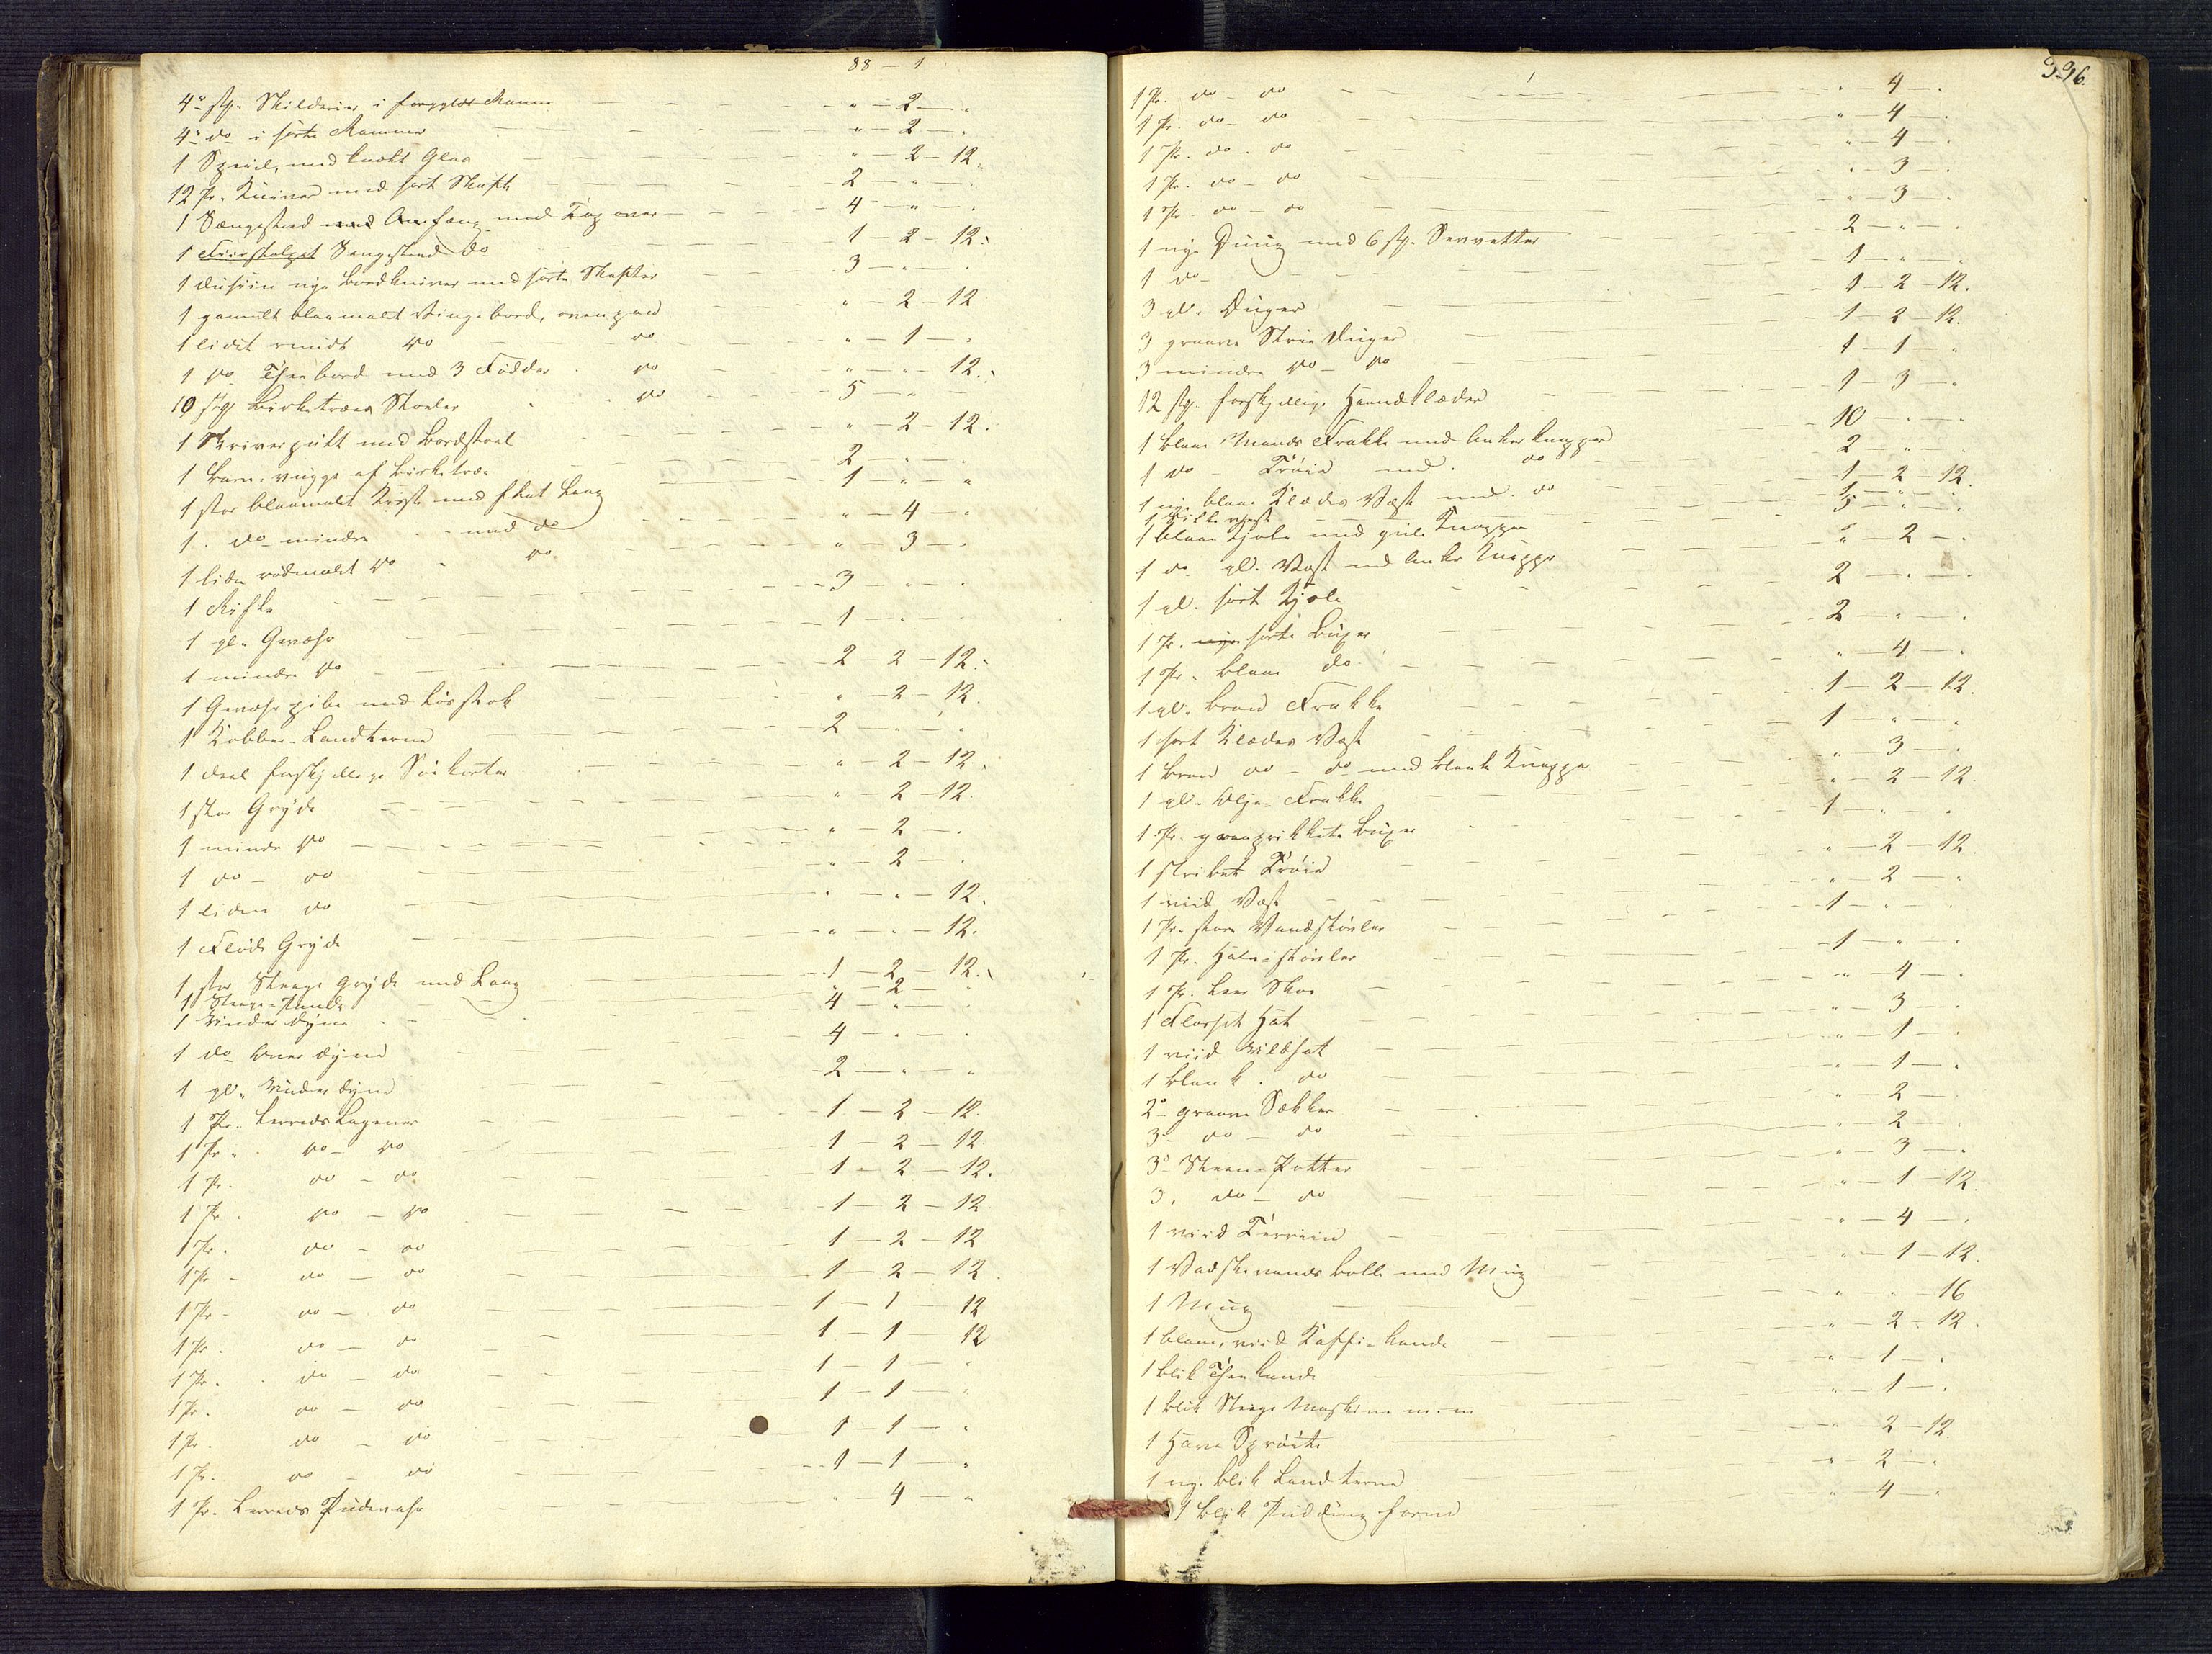 88 – 1
4 stk. Skilderier i forgyldt Ramme " – 2 – "
4 do i sorte Rammer " – 2 – "
1 Speil, med knækt Glas " – 2 – 12
12 Pr. Kniver med sort Skaft 2 – " – "
1 Sængested med Omhæng med Tag over 4 – " – "
1 Fiirstolpet Sengested do 1 – 2 – 12
1 dusiin nye Bordkniver med sorte Skafter 3 – " – "
1 gamelt blaamalt Vinge bord, ovenpaa " – 2 – 12
1 lidet rundt do do " – 1 – "
1 do Thee bord med 3 Fødder do " – " – 12
10 stk Birketræes Stoeler do 5 – " – "
1 Skriverpult med Bordstoel " – 2 – 12
1 Barnevugge af Birketræe 2 – " – "
1 stor blaamalet Kiste med flat Laag 1 – " – "
1 do mindre med do " – 4 – "
1 liden rødmalet do do " – 3 – "
1 Rifle 3 – " – "
1 gl. Gevæhr 1 – " – "
1 mindre do 2 – 2 – 12
1 Gevæhr pibe med Løsstok " – 2 – 12
1 Kobber-Landterne 2 – " – "
1 deel forskjellige Søekorter " – 2 – 12
1 stor Gryde " – 2 – 12
1 mindre do " – 2 – "
1 do – do " – 2 – "
1 liden do " – " – 12
1 Fløde Gryde " – " – 12
1 stor Steege gryde med Laag 1 – 2 – 12
1 Steege-Pande " – 2 – "
1 Under dyne 4 – " – "
1 do Over dyne 4 – " – "
1 gl. Under dyne 2 – " – "
1 Pr. Lerreds Lagener 1 – 2 – 12
1 Pr. do – do 1 – 2 – 12
1 Pr. do – do 1 – 2 – 12
1 Pr. do – do 1 – 2 – 12
1 Pr. do – do 1 – 2 – 12
1 Pr. do – do 1 – 2 – 12
1 Pr. do – do 1 – 1 – 12
1 Pr. do – do 1 – 1 – 12
1 Pr. do – do 1 – 1 – "
1 Pr. do – do 1 – 1 – "
1 Pr. do – do 1 – 1 – "
1 Pr. do – do 1 – 1 – "
1 Pr. Lerreds Pudevahr " – 4 – "
396.
1 Pr. do – do " – 4 – "
1 Pr. do – do " – 4 – "
1 Pr. do – do " – 4 – "
1 Pr. do – do " – 3 – "
1 Pr. do – do " – 3 – "
1 nye Duug med 6 stk. Servetter 2 – " – "
1 do 1 – " – "
3 gl. Duger 1 – 2 – 12
3 graae Strie Duger 1 – 2 – 12
3 mindre do – do 1 – 1 – "
12 stk. forskjellige Haandklæder 1 – 3 – "
1 blaae Mands Frakke med Anker knapper 10 – " – "
1 do – Trøie med do 2 – " – "
1 nye blaae Klædes Væst med do 1 – 2 – 12
1 blaae Kjole med gule Knapper 5 – " – "
1 do gl. Væst med Anker Knapper " – 2 – "
1 gl. sort Kjole 2 – " – "
1 Pr. nye sorte Buxer 2 – " – "
1 Pr. blaae do " – 4 – "
1 gl. brun Frakke 1 – 2 – 12
1 sort Klædes Væst 1 – " – "
1 brun do – do med blanke Knapper " – 3 – "
1 gl. Olje-Frakke " – 2 – 12
1 Pr. graaprikkete Buxer 1 – " – "
1 stribet Trøie " – 2 – 12
1 viid Væst " – 2 – "
1 Pr. store Vandstøvler 1 – " – "
1 Pr. Halv-støvler 1 – " – "
1 Pr. Lær Skoe " – 4 – "
1 Flosset Hat " – 3 – "
1 viid Uldhat " – 1 – "
1 blank do " – 1 – "
2 graae Sækker " – 2 – "
3 do – do " – 2 – "
3 Steen-Potter " – 3 – "
3 do – do " – 1 – 12
1 viid Terriin " – 4 – "
1 Vadskevands bolle med Mug " – 1 – 12
1 Mug " – " – 16
1 blaae, viid Kaffi-kande " – 2 – 12
1 blik Thee kande " – 1 – "
1 blik Steege Maskine m. m. " – 1 – "
1 Have Sprøite " – 2 – 12
1 ny blik Landterne " – 2 – "
1 blik Pudding form " – 4 – "